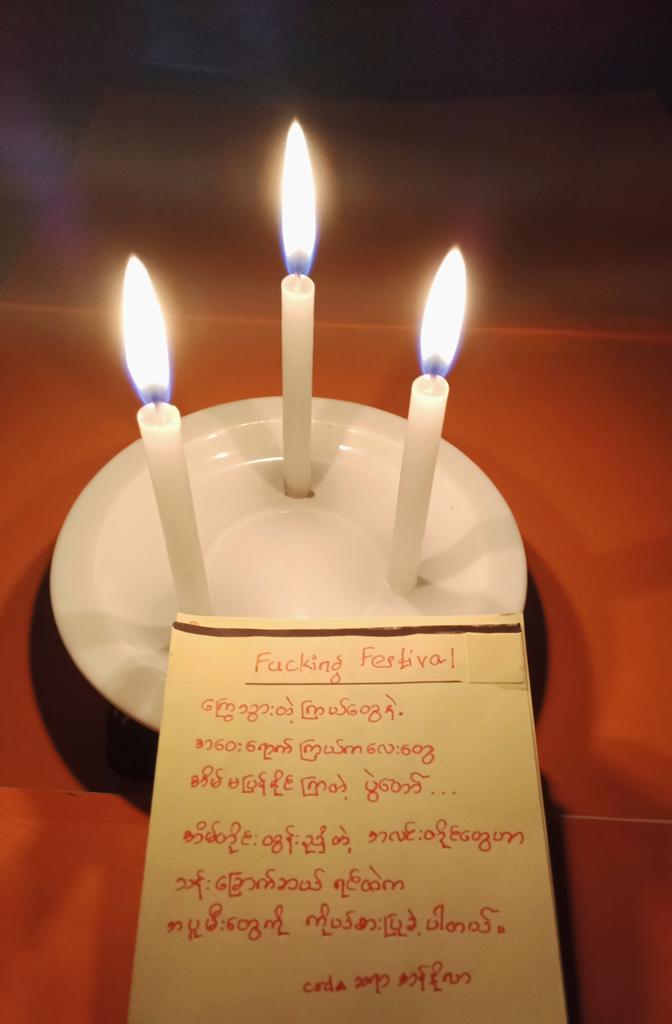 Fucking Festival
ကြွေသွားတဲ့ ကြယ်တွေနဲ့.
အဝေးရောက် ကြယ်ကလေးတွေ
အိမ်မပြန်နိုင် ကြတဲ့ ပွဲတော် ...
အိမ်တိုင်းထွန်းညှိတဲ့ အလင်းတိုင်တွေဟာ
သန်းခြောက်ဆယ် ရင်ထဲက
အပူမီးတွေကို ကိုယ်စားပြုခဲ့ပါတယ်။
ဆရာ